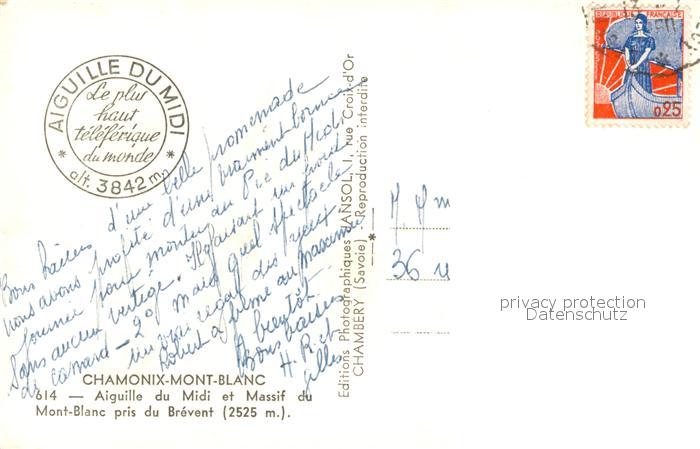 AIGUILLE DU MIDI
Le plus
haut
téléférique
du monde
* alt. 3842 m. *
Bons baisers d'une belle promenade
nous avons profité d'une vraiment bonne
journée pour monter au Pic du Midi
Sans aucun vertige. Il faisait un froid
de canard - 20 mais quel spectacle
un vrai régal des yeux
Robert a filmé au maximum
A bientôt
Bons baisers
H. R. et
Gilles
CHAMONIX-MONT-BLANC
614 — Aiguille du Midi et Massif du
Mont-Blanc pris du Brévent (2525 m.).
Editions Photographiques JANSOL, 1, rue Croix-d'Or
CHAMBÉRY (Savoie) - Reproduction interdite
REPUBLIQUE FRANÇAISE
POSTES
0,25
M Mm
36
privacy protection
Datenschutz